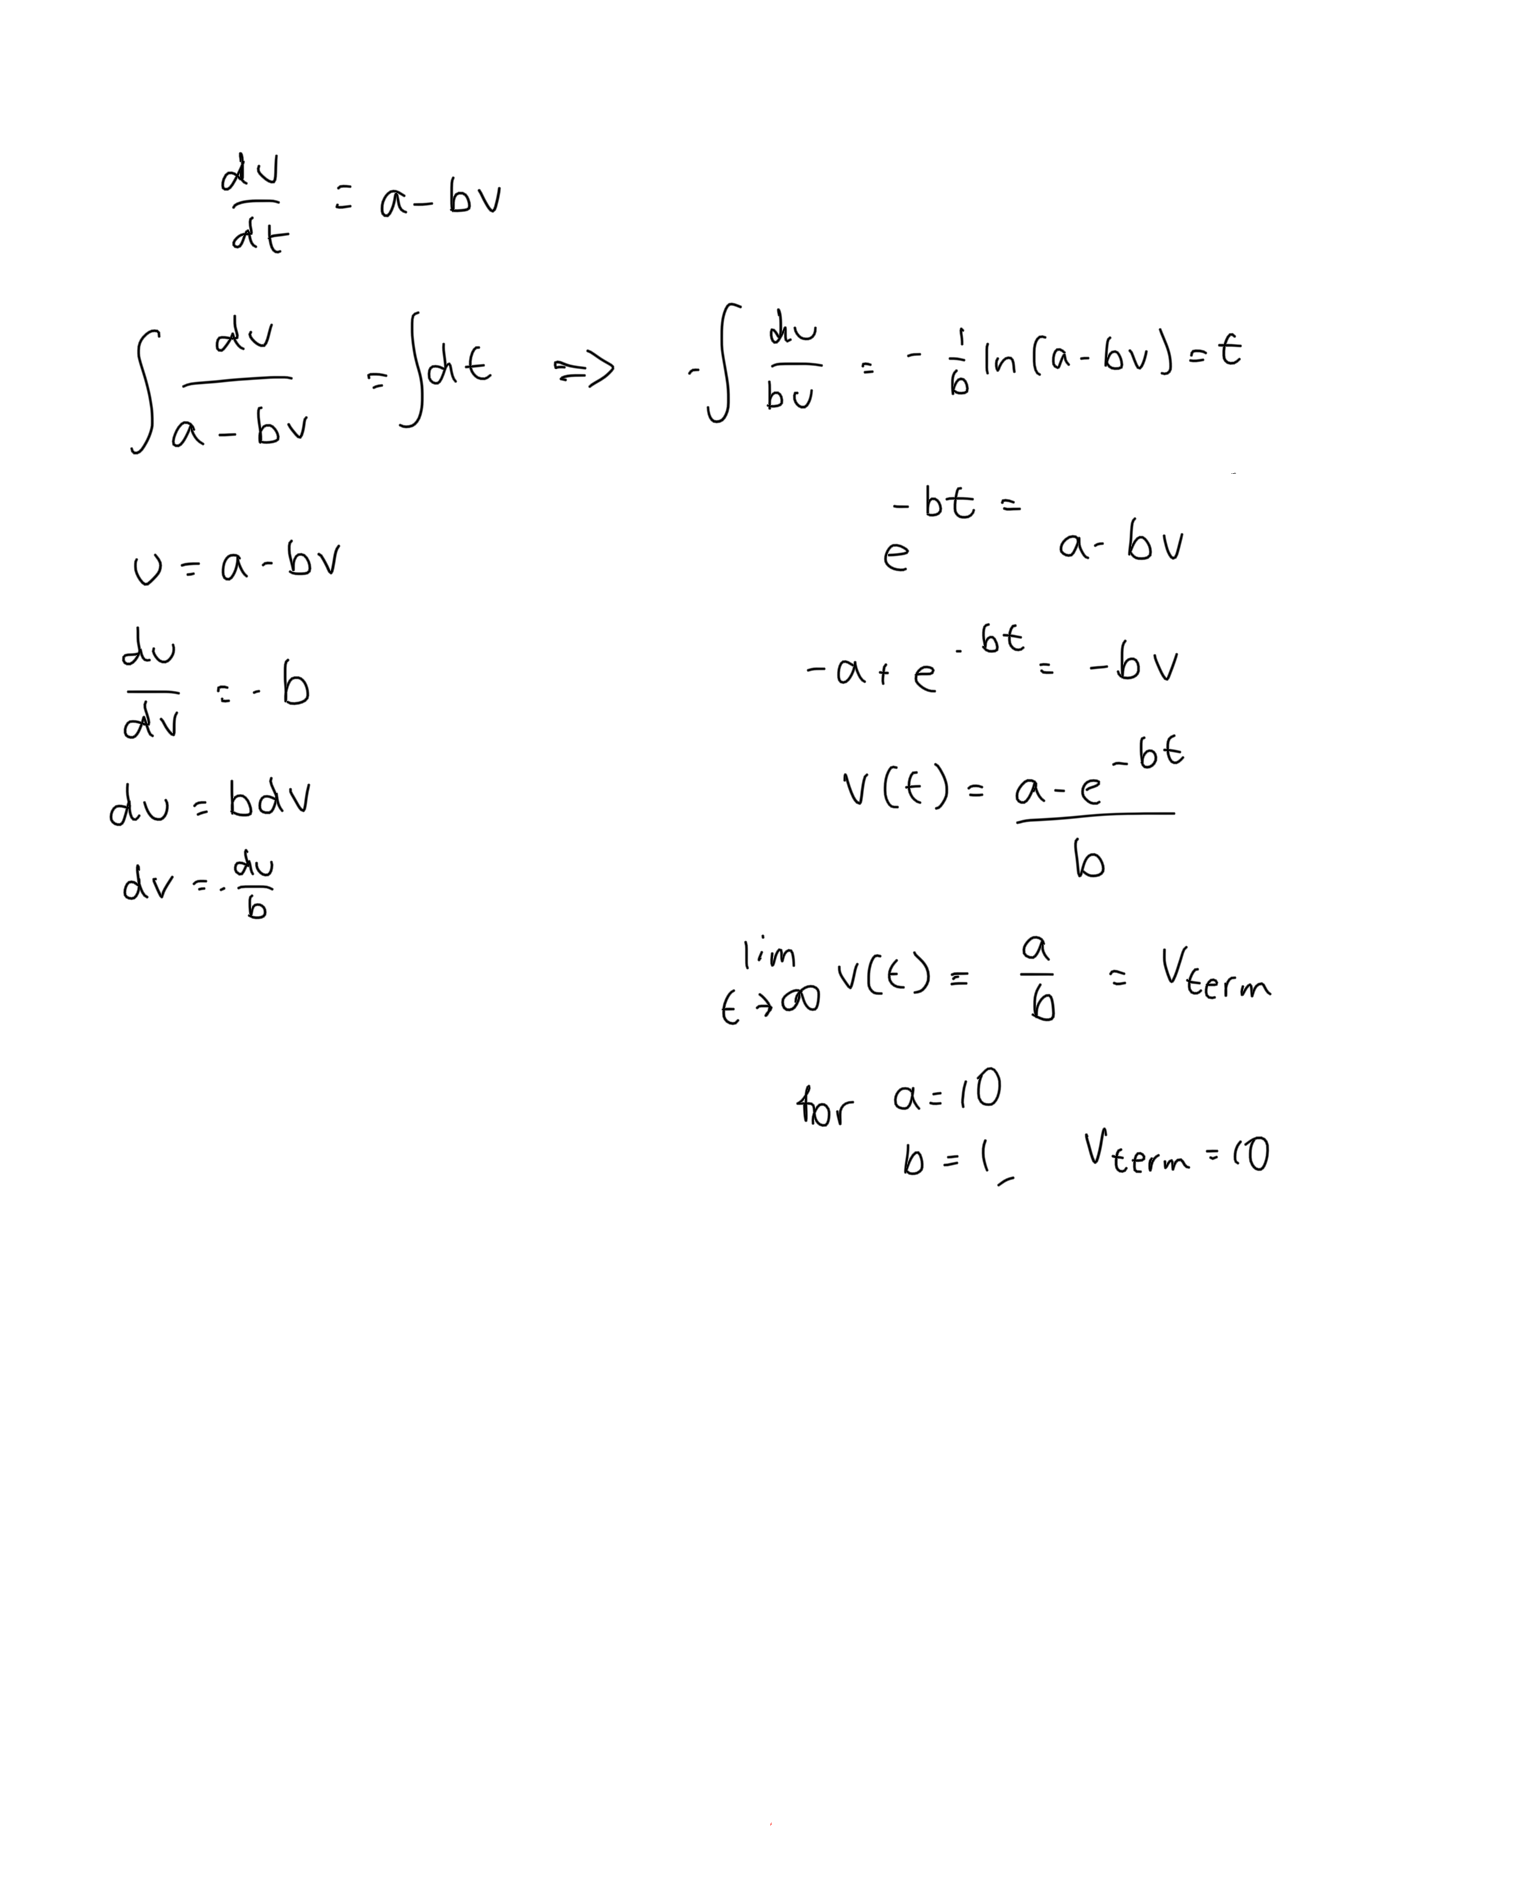 dv/dt = a-bv
∫ dv/(a-bv) = ∫dt ⇒ -∫ du/bu = -1/b ln(a-bv) = t
u = a-bv
du/dv = -b
du = bdv
dv = -du/b
e^(-bt) = a-bv
-a+e^(-bt) = -bv
v(t) = (a-e^(-bt))/b
lim t→∞ v(t) = a/b = Vterm
for a=10
b=1, Vterm=10